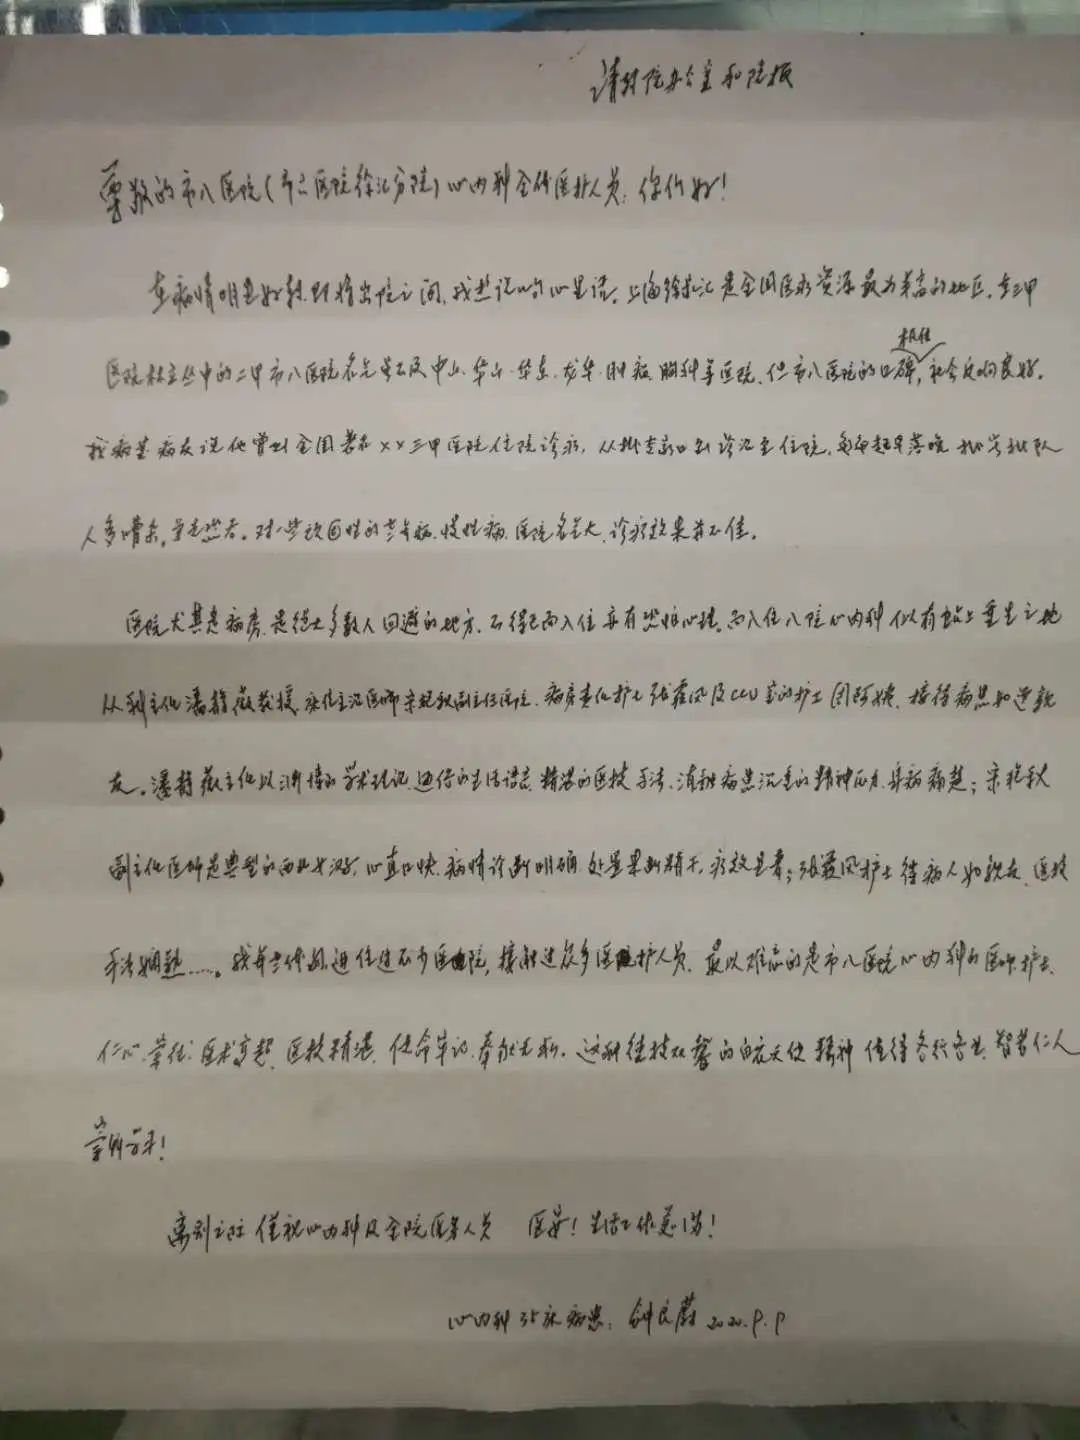 请转院办公室和院报
尊敬的市八医院(市六医院徐汇分院)心内科全体医护人员:你们好!
在病情明显好转即将出院之间,我想说的心里话。上海徐汇是全国医疗资源最为丰富的地区,在三甲
医院林立丛中的二甲市八医院名气虽不及中山、华山、华东、龙华、肿瘤、胸科等医院,但市八医院的口碑极佳,社会反响良好。
我病室病友说他曾到全国著名××三甲医院住院诊疗,从排专家门诊治至住院,起早落晚 排队
人多嘈杂,对一些顽固性的老年病、慢性病,医院名气大,诊疗效果并不佳。
医院尤其是病房,是绝大多数人回避的地方,不得已而入住亦有恐惧心理,而入住八院心内科似有踏上重生之地
从科主任潘静薇教授、床位主治医师宋艳秋副主任医院、病房责任护士张霞凤及CCU室的护士团阿姨,接待病患如逢亲
友。潘静薇主任以渊博的学术理论、通俗的生活语言、精湛的医技手法,消融病患沉重的精神压力、身病痛楚;宋艳秋
副主任医师是典型的西北女汉子,心直口快,病情诊断明确,处置果断精干,疗效显著;张霞凤护士待病人如亲友,医技
手法娴熟……。我年老体弱,进住过不少医院,接触过众多医院护人员,最以难忘的是市八医院心内科的医师、护士,
仁心、责任、医术高超、医技精湛、使命牢记、奉献无私。这种德技双馨的白衣天使精神值得各行各业、智者仁人
崇尚学习!
离别之际 谨祝心内科及全院医务人员 医安!生活工作愉悦!
心内科35床病患: 钟良蔚 2020.9.9